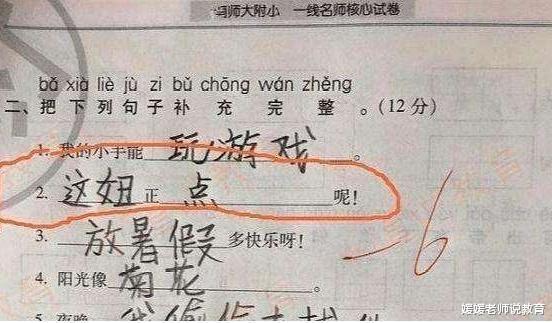 冯师大附小 一线名师核心试卷
bǎ xià liè jù zi bǔ chōng wán zhěng
二、把下列句子补充完整。(12分)
1. 我的小手能玩游戏。
2. 这妞正点呢!
3. 放暑假多快乐呀!
-6
4. 阳光像菊花。
5. 夜晚
媛媛老师说教育